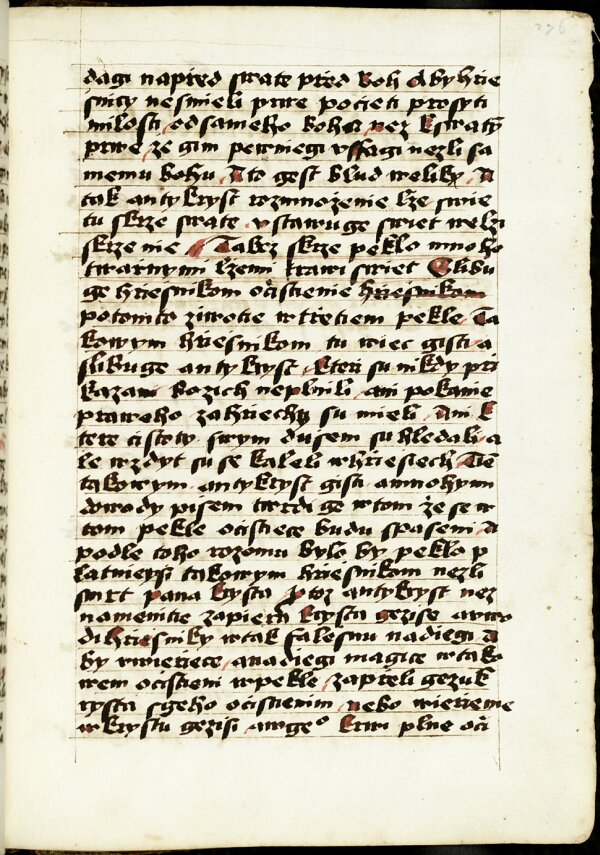 dagi napřed swate před boh Aby hřie
snicy nesmieli prwe počieti prosyti
milosti od sameho boha nez k swatym
prwe ze gim pewniegi vffagi nezli sa
memu bohu A to gest blud weliky A
tak antykryst rozmnoženie lže swie
tu skrze swate vstawuge swiet w lži
skrze nie Tabz skrze peklo mnoho
twarnymi lžemi krawi swiet Slibu
ge hřiesnikom očistienie hřiesnikom
potomto ziwotie w třetiem pekle Ta
kowym hřiesnikom tu wiec gisti a
slibuge antykryst kteři su nikdy při
kazani bozich neplnili ani pokanie
praweho za hřiechy su mieli Ani k
tere čistoty swym dusem su hledali a
le wzdyt su se kaleli w hřiesiech Tie
takowym antykryst gisti a mnohymi
dowody pisem twrdi ge w tom že se w
tom pekle očistiece budu spaseni A
podle toho rozomu bylo by peklo p
latnieysi takowym hřiesnikom nezli
smrt pana krysta protoz antykryst nez
namenitie zapiera krysta gezise a wo
di hřiesniky w tak falesnu nadiegi A
by wieřiece a nadiegi magice w tako
wem očistieni w pekle zapřeli gezuk
rysta s geho očistienim nebo wieřenie
w krystu gezisi a w geho krwi plne oči